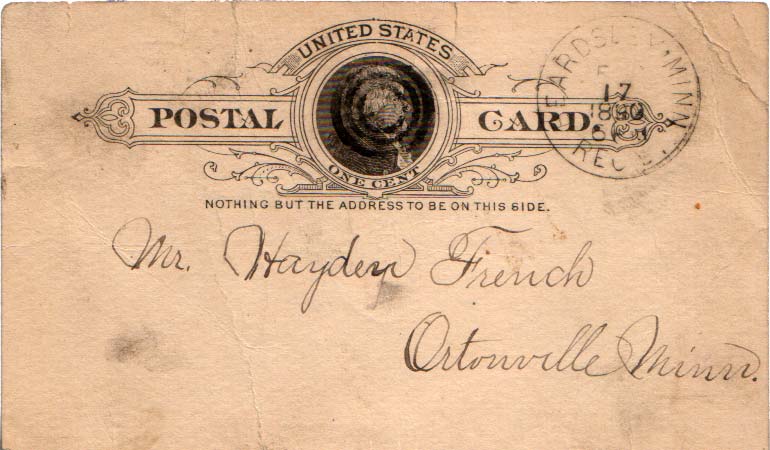 UNITED STATES
POSTAL CARD.
ONE CENT
NOTHING BUT THE ADDRESS TO BE ON THIS SIDE.
BEARDSLEY, MINN.
17
1890
REC'D.
Mr. Hayden French
Ortonville Minn.